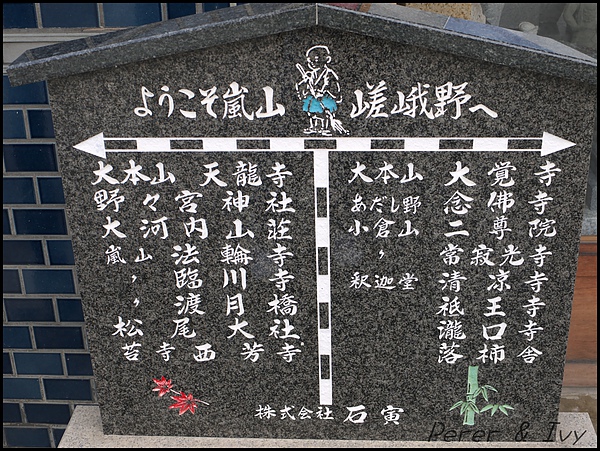 ようこそ嵐山 嵯峨野へ
大本山 天龍寺
野々宮神社
大河内山荘
嵐山 法輪寺
〃 臨川寺
〃 渡月橋
松尾大社
苔寺 西芳寺
大本山 大覚寺
あだし野 念佛寺
小倉山 二尊院
〃 常寂光寺
釈迦堂 清凉寺
祇王寺
瀧口寺
落柿舎
株式会社 石寅
Perer & Ivy